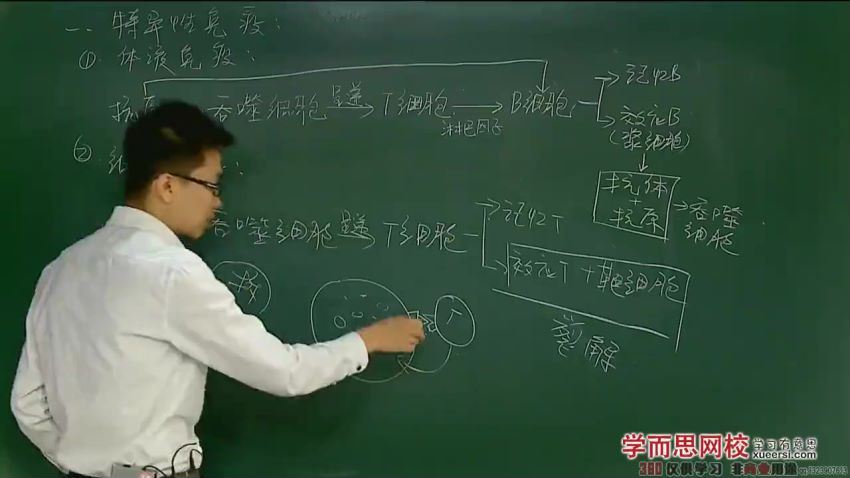 一、特异性免疫:
① 体液免疫:
抗 吞噬细胞 呈递 T细胞 淋巴因子 B细胞 记忆B
效应B
(浆细胞)
抗体
+
抗原
吞噬
细胞
②
吞噬细胞 呈递 T细胞 记忆T
效应T + 靶细胞
裂解
T
学而思网校 学习有意思
xueersi.com
360 仅供学习 非商业用途